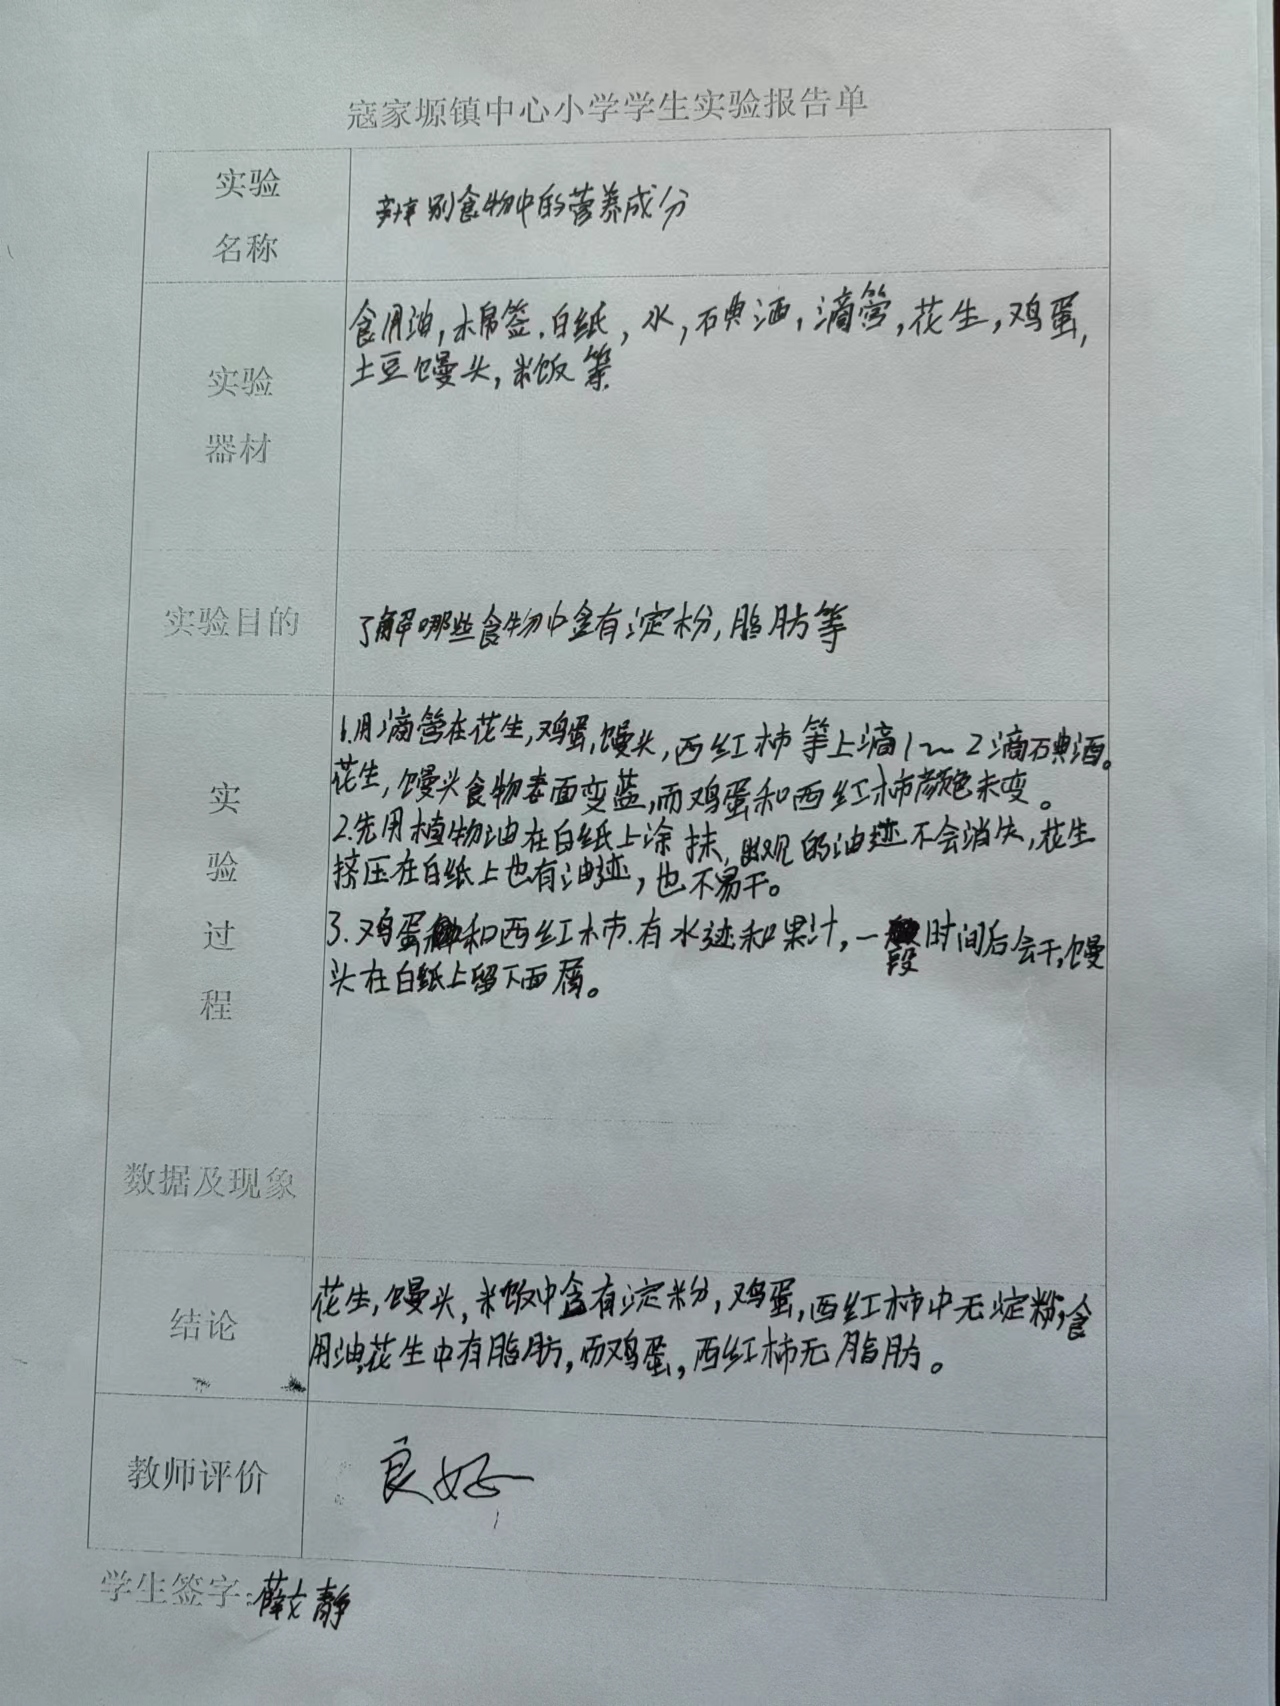 寇家塬镇中心小学学生实验报告单
实验
名称
辨别食物中的营养成分
实验
器材
食用油，木棉签，白纸，水，石典酒，滴管，花生，鸡蛋，
土豆馒头，米饭等
实验目的
了解哪些食物中含有淀粉，脂肪等
实
验
过
程
1.用滴管在花生，鸡蛋，馒头，西红柿等上滴1～2滴石典酒。
花生，馒头食物表面变蓝，而鸡蛋和西红柿颜色未变。
2.先用植物油在白纸上涂抹，出现的油迹不会消失，花生
挤压在白纸上也有油迹，也不易干。
3.鸡蛋和西红柿.有水迹和果汁，一段时间后会干，馒
头在白纸上留下面屑。
数据及现象
结论
花生，馒头，米饭中含有淀粉，鸡蛋，西红柿中无淀粉；食
用油，花生中有脂肪，而鸡蛋，西红柿无脂肪。
教师评价
良好
学生签字：薛文静